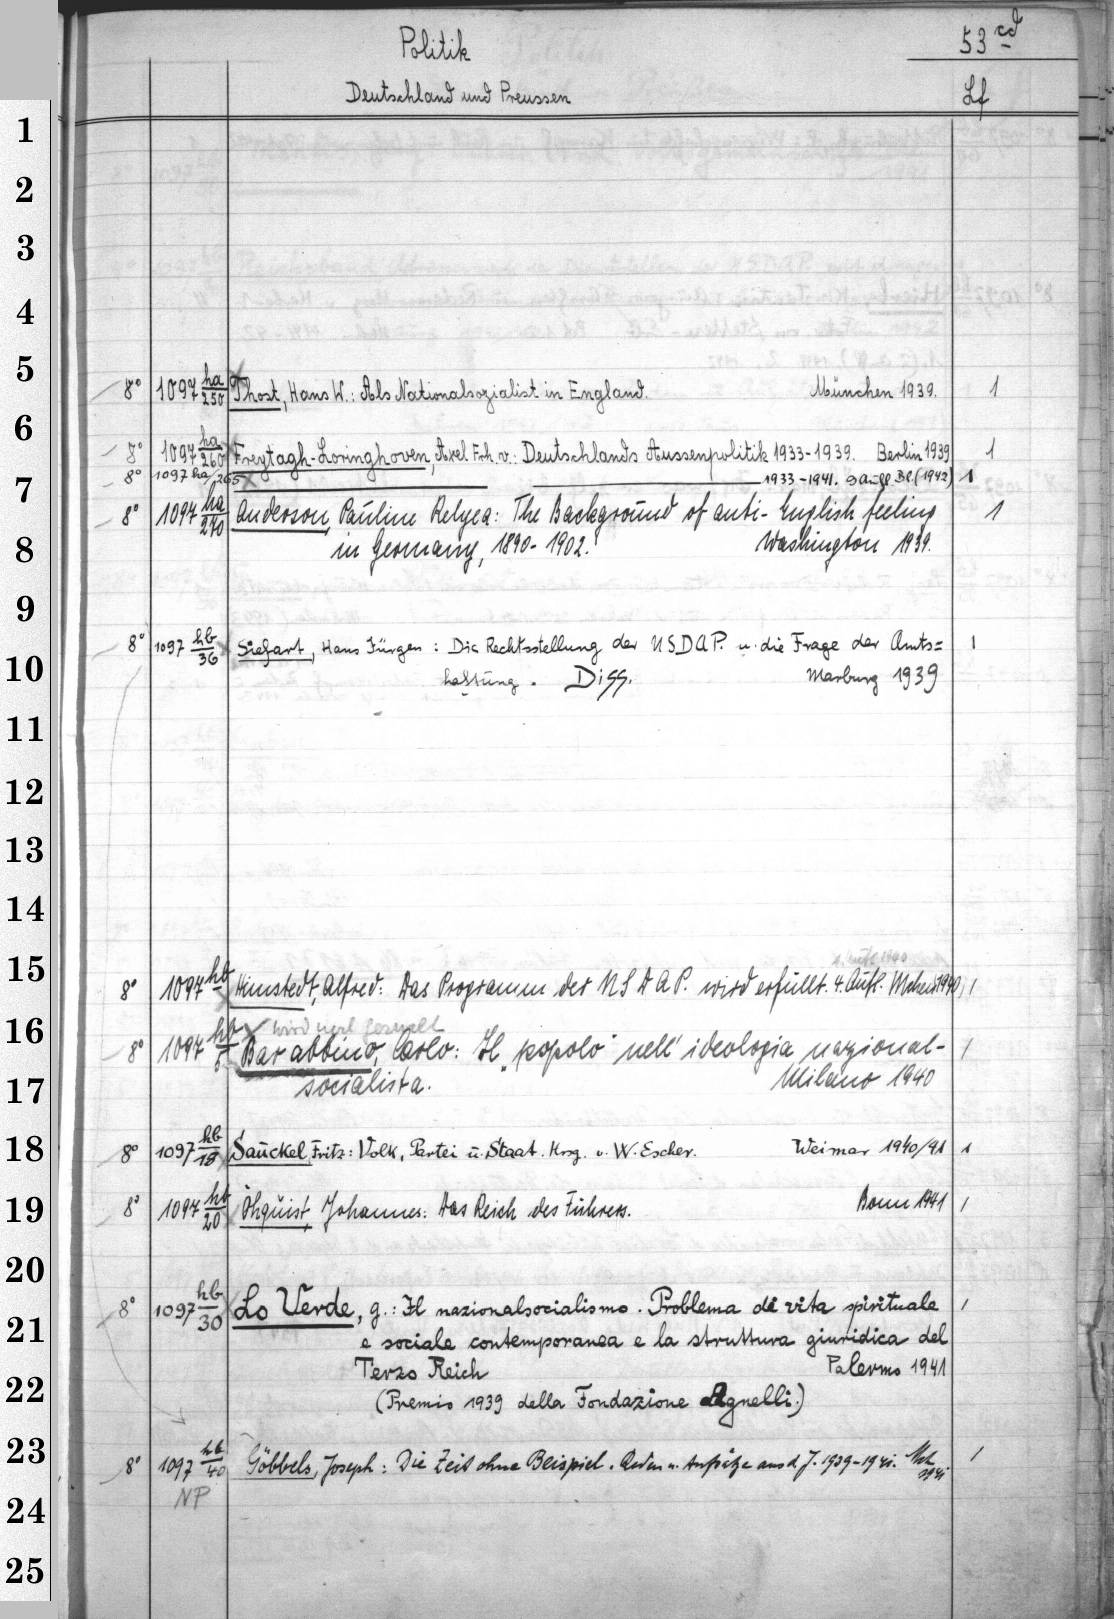 Politik
53 cd
Deutschland und Preussen
Lf
1
2
3
4
5
8° 1097 ha/250 Thost, Hans W.: Als Nationalsozialist in England. München 1939. 1
6
8° 1097 ha/260 Freytagh-Loringhoven, Axel Frh. v.: Deutschlands Aussenpolitik 1933-1939. Berlin 1939 1
7
8° 1097 ha/265 1933-1941. Aufl Bl. (1942) 1
8° 1097 ha/270 Anderson, Pauline Relyea: The Background of anti-English feeling 1
8
in Germany, 1890-1902. Washington 1939.
9
8° 1097 hb/36 Siegart, Hans Jürgen: Die Rechtsstellung der NSDAP. u. die Frage der Amts= 1
10
haftung. Diss. Marburg 1939
11
12
13
14
15
8° 1097 hb Himstedt, Alfred: Das Programm der NSDAP. wird erfüllt. 4. Aufl. Mchen 1940 1
16
wird gesucht
8° 1097 hb Barabbino, Carlo: Il „popolo" nell' ideologia nazional- 1
17
socialista. Milano 1940
18
8° 1097 hb/18 Sauckel, Fritz: Volk, Partei u. Staat. Hrsg. v. W. Escher. Weimar 1940/41 1
19
8° 1097 hb/20 Öhquist, Johannes: Das Reich des Führers. Bonn 1941 1
20
8° 1097 hb/30 Lo Verde, G.: Il nazionalsocialismo. Problema di vita spirituale 1
21
e sociale contemporanea e la struttura giuridica del
Terzo Reich Palermo 1941
22
(Premio 1939 della Fondazione Agnelli.)
23
8° 1097 hb/40 Göbbels, Joseph: Die Zeit ohne Beispiel. Reden u. Aufsätze aus d. J. 1939-1941. Mch 1941 1
NP
24
25